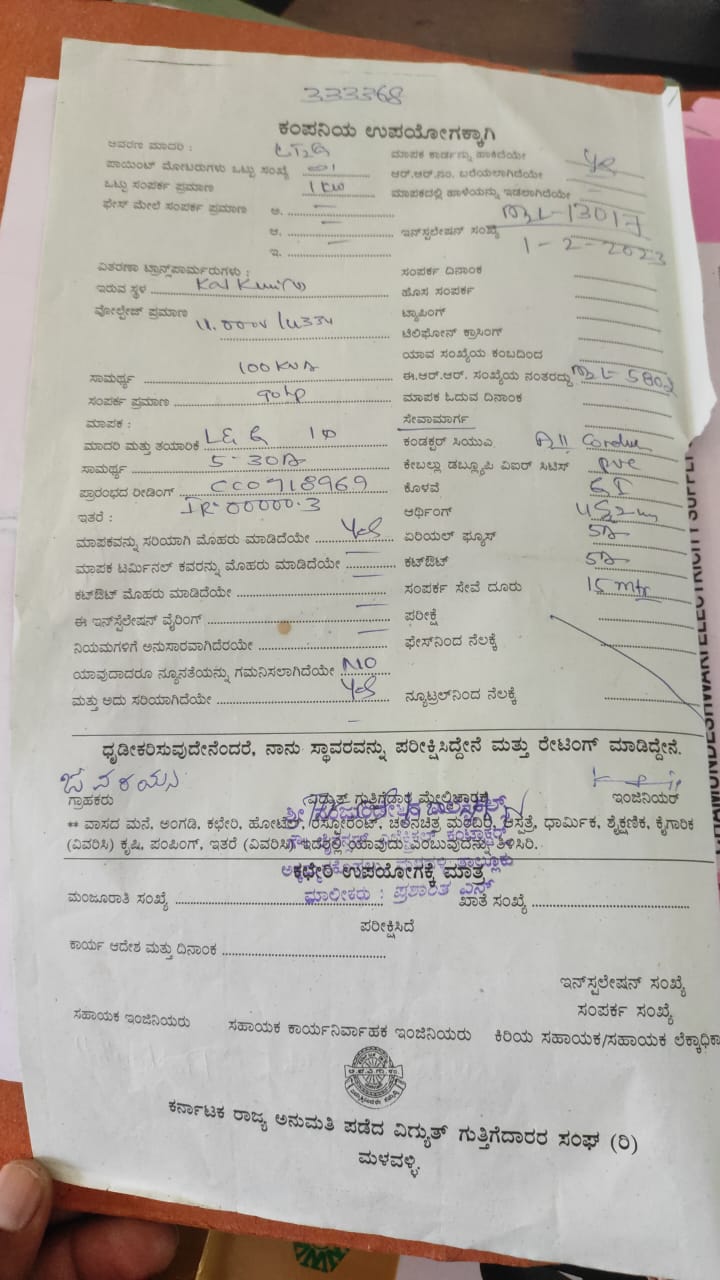 333368
ಕಂಪನಿಯ ಉಪಯೋಗಕ್ಕಾಗಿ
ಆವರಣ ಮಾದರಿ : LT2G ಮಾಪಕ ಕಾರ್ಡನ್ನು ಹಾಕಿದೆಯೇ Yes
ಪಾಯಿಂಟ್ ಮೋಟರುಗಳು ಒಟ್ಟು ಸಂಖ್ಯೆ 01 ಆರ್.ಆರ್.ನಂ. ಬರೆಯಲಾಗಿದೆಯೇ
ಒಟ್ಟು ಸಂಪರ್ಕ ಪ್ರಮಾಣ 1 KW ಮಾಪಕದಲ್ಲಿ ಹಾಳೆಯನ್ನು ಇಡಲಾಗಿದೆಯೇ
ಫೇಸ್ ಮೇಲೆ ಸಂಪರ್ಕ ಪ್ರಮಾಣ ಅ.
ಆ. ಇನ್‌ಸ್ಟಲೇಷನ್ ಸಂಖ್ಯೆ BL-13017
ಇ. 1-2-2023
ವಿತರಣಾ ಟ್ರಾನ್ಸ್‌ಫಾರ್ಮರುಗಳು : ಸಂಪರ್ಕ ದಿನಾಂಕ
ಇರುವ ಸ್ಥಳ ಹೊಸ ಸಂಪರ್ಕ
ವೋಲ್ಟೇಜ್ ಪ್ರಮಾಣ 11.000V/433V ಟ್ಯಾಪಿಂಗ್
ಟೆಲಿಫೋನ್ ಕ್ರಾಸಿಂಗ್
ಯಾವ ಸಂಖ್ಯೆಯ ಕಂಬದಿಂದ
ಸಾಮರ್ಥ್ಯ 100 KVA ಈ.ಆರ್.ಆರ್. ಸಂಖ್ಯೆಯ ನಂತರದ್ದು
ಸಂಪರ್ಕ ಪ್ರಮಾಣ 90hp ಮಾಪಕ ಓದುವ ದಿನಾಂಕ
ಮಾಪಕ : ಸೇವಾಮಾರ್ಗ
ಮಾದರಿ ಮತ್ತು ತಯಾರಿಕೆ L&G 1Φ ಕಂಡಕ್ಟರ್ ಸಿಯುಎ
ಸಾಮರ್ಥ್ಯ 5-30A ಕೇಬಲ್ಲು ಡಬ್ಲ್ಯೂಪಿ ವಿಐರ್ ಸಿಟಿಸ್ pvc
ಪ್ರಾರಂಭದ ರೀಡಿಂಗ್ CC0718969 ಕೊಳವೆ GI
ಇತರೆ : IR-00000.3 ಆರ್ಥಿಂಗ್
ಮಾಪಕವನ್ನು ಸರಿಯಾಗಿ ಮೊಹರು ಮಾಡಿದೆಯೇ Yes ಏರಿಯಲ್ ಫ್ಯೂಸ್ 5A
ಮಾಪಕ ಟರ್ಮಿನಲ್ ಕವರನ್ನು ಮೊಹರು ಮಾಡಿದೆಯೇ ಕಟ್‌ಔಟ್ 5A
ಕಟ್‌ಔಟ್ ಮೊಹರು ಮಾಡಿದೆಯೇ ಸಂಪರ್ಕ ಸೇವೆ ದೂರು 15 mtr
ಈ ಇನ್‌ಸ್ಟಲೇಷನ್ ವೈರಿಂಗ್ ಪರೀಕ್ಷೆ
ನಿಯಮಗಳಿಗೆ ಅನುಸಾರವಾಗಿದೆರಯೇ ಫೇಸ್‌ನಿಂದ ನೆಲಕ್ಕೆ
ಯಾವುದಾದರೂ ನ್ಯೂನತೆಯನ್ನು ಗಮನಿಸಲಾಗಿದೆಯೇ NO
ಮತ್ತು ಅದು ಸರಿಯಾಗಿದೆಯೇ Yes ನ್ಯೂಟ್ರಲ್‌ನಿಂದ ನೆಲಕ್ಕೆ
ಧೃಡೀಕರಿಸುವುದೇನೆಂದರೆ, ನಾನು ಸ್ಥಾವರವನ್ನು ಪರೀಕ್ಷಿಸಿದ್ದೇನೆ ಮತ್ತು ರೇಟಿಂಗ್ ಮಾಡಿದ್ದೇನೆ.
ಗ್ರಾಹಕರು ವಿದ್ಯುತ್ ಗುತ್ತಿಗೆದಾರ ಮೇಲ್ವಿಚಾರಕ ಇಂಜಿನಿಯರ್
** ವಾಸದ ಮನೆ, ಅಂಗಡಿ, ಕಛೇರಿ, ಹೋಟೆಲ್, ರೆಸ್ಟೋರೆಂಟ್, ಚಲನಚಿತ್ರ ಮಂದಿರ, ಆಸ್ಪತ್ರೆ, ಧಾರ್ಮಿಕ, ಶೈಕ್ಷಣಿಕ, ಕೈಗಾರಿಕೆ
(ವಿವರಿಸಿ) ಕೃಷಿ, ಪಂಪಿಂಗ್, ಇತರೆ (ವಿವರಿಸಿ) ಇದರಲ್ಲಿ ಯಾವುದು ಎಂಬುವುದನ್ನು ತಿಳಿಸಿರಿ.
ಕಛೇರಿ ಉಪಯೋಗಕ್ಕೆ ಮಾತ್ರ
ಮಾಲೀಕರು : ಪ್ರಶಾಂತ ಎನ್
ಮಂಜೂರಾತಿ ಸಂಖ್ಯೆ ಖಾತೆ ಸಂಖ್ಯೆ
ಪರೀಕ್ಷಿಸಿದೆ
ಕಾರ್ಯ ಆದೇಶ ಮತ್ತು ದಿನಾಂಕ
ಇನ್‌ಸ್ಟಲೇಷನ್ ಸಂಖ್ಯೆ
ಸಂಪರ್ಕ ಸಂಖ್ಯೆ
ಸಹಾಯಕ ಇಂಜಿನಿಯರು ಸಹಾಯಕ ಕಾರ್ಯನಿರ್ವಾಹಕ ಇಂಜಿನಿಯರು ಕಿರಿಯ ಸಹಾಯಕ/ಸಹಾಯಕ ಲೆಕ್ಕಾಧಿಕಾ
ಕರ್ನಾಟಕ ರಾಜ್ಯ ಅನುಮತಿ ಪಡೆದ ವಿದ್ಯುತ್ ಗುತ್ತಿಗೆದಾರರ ಸಂಘ (ರಿ)
ಮಳವಳ್ಳಿ.
ELECTRICITY